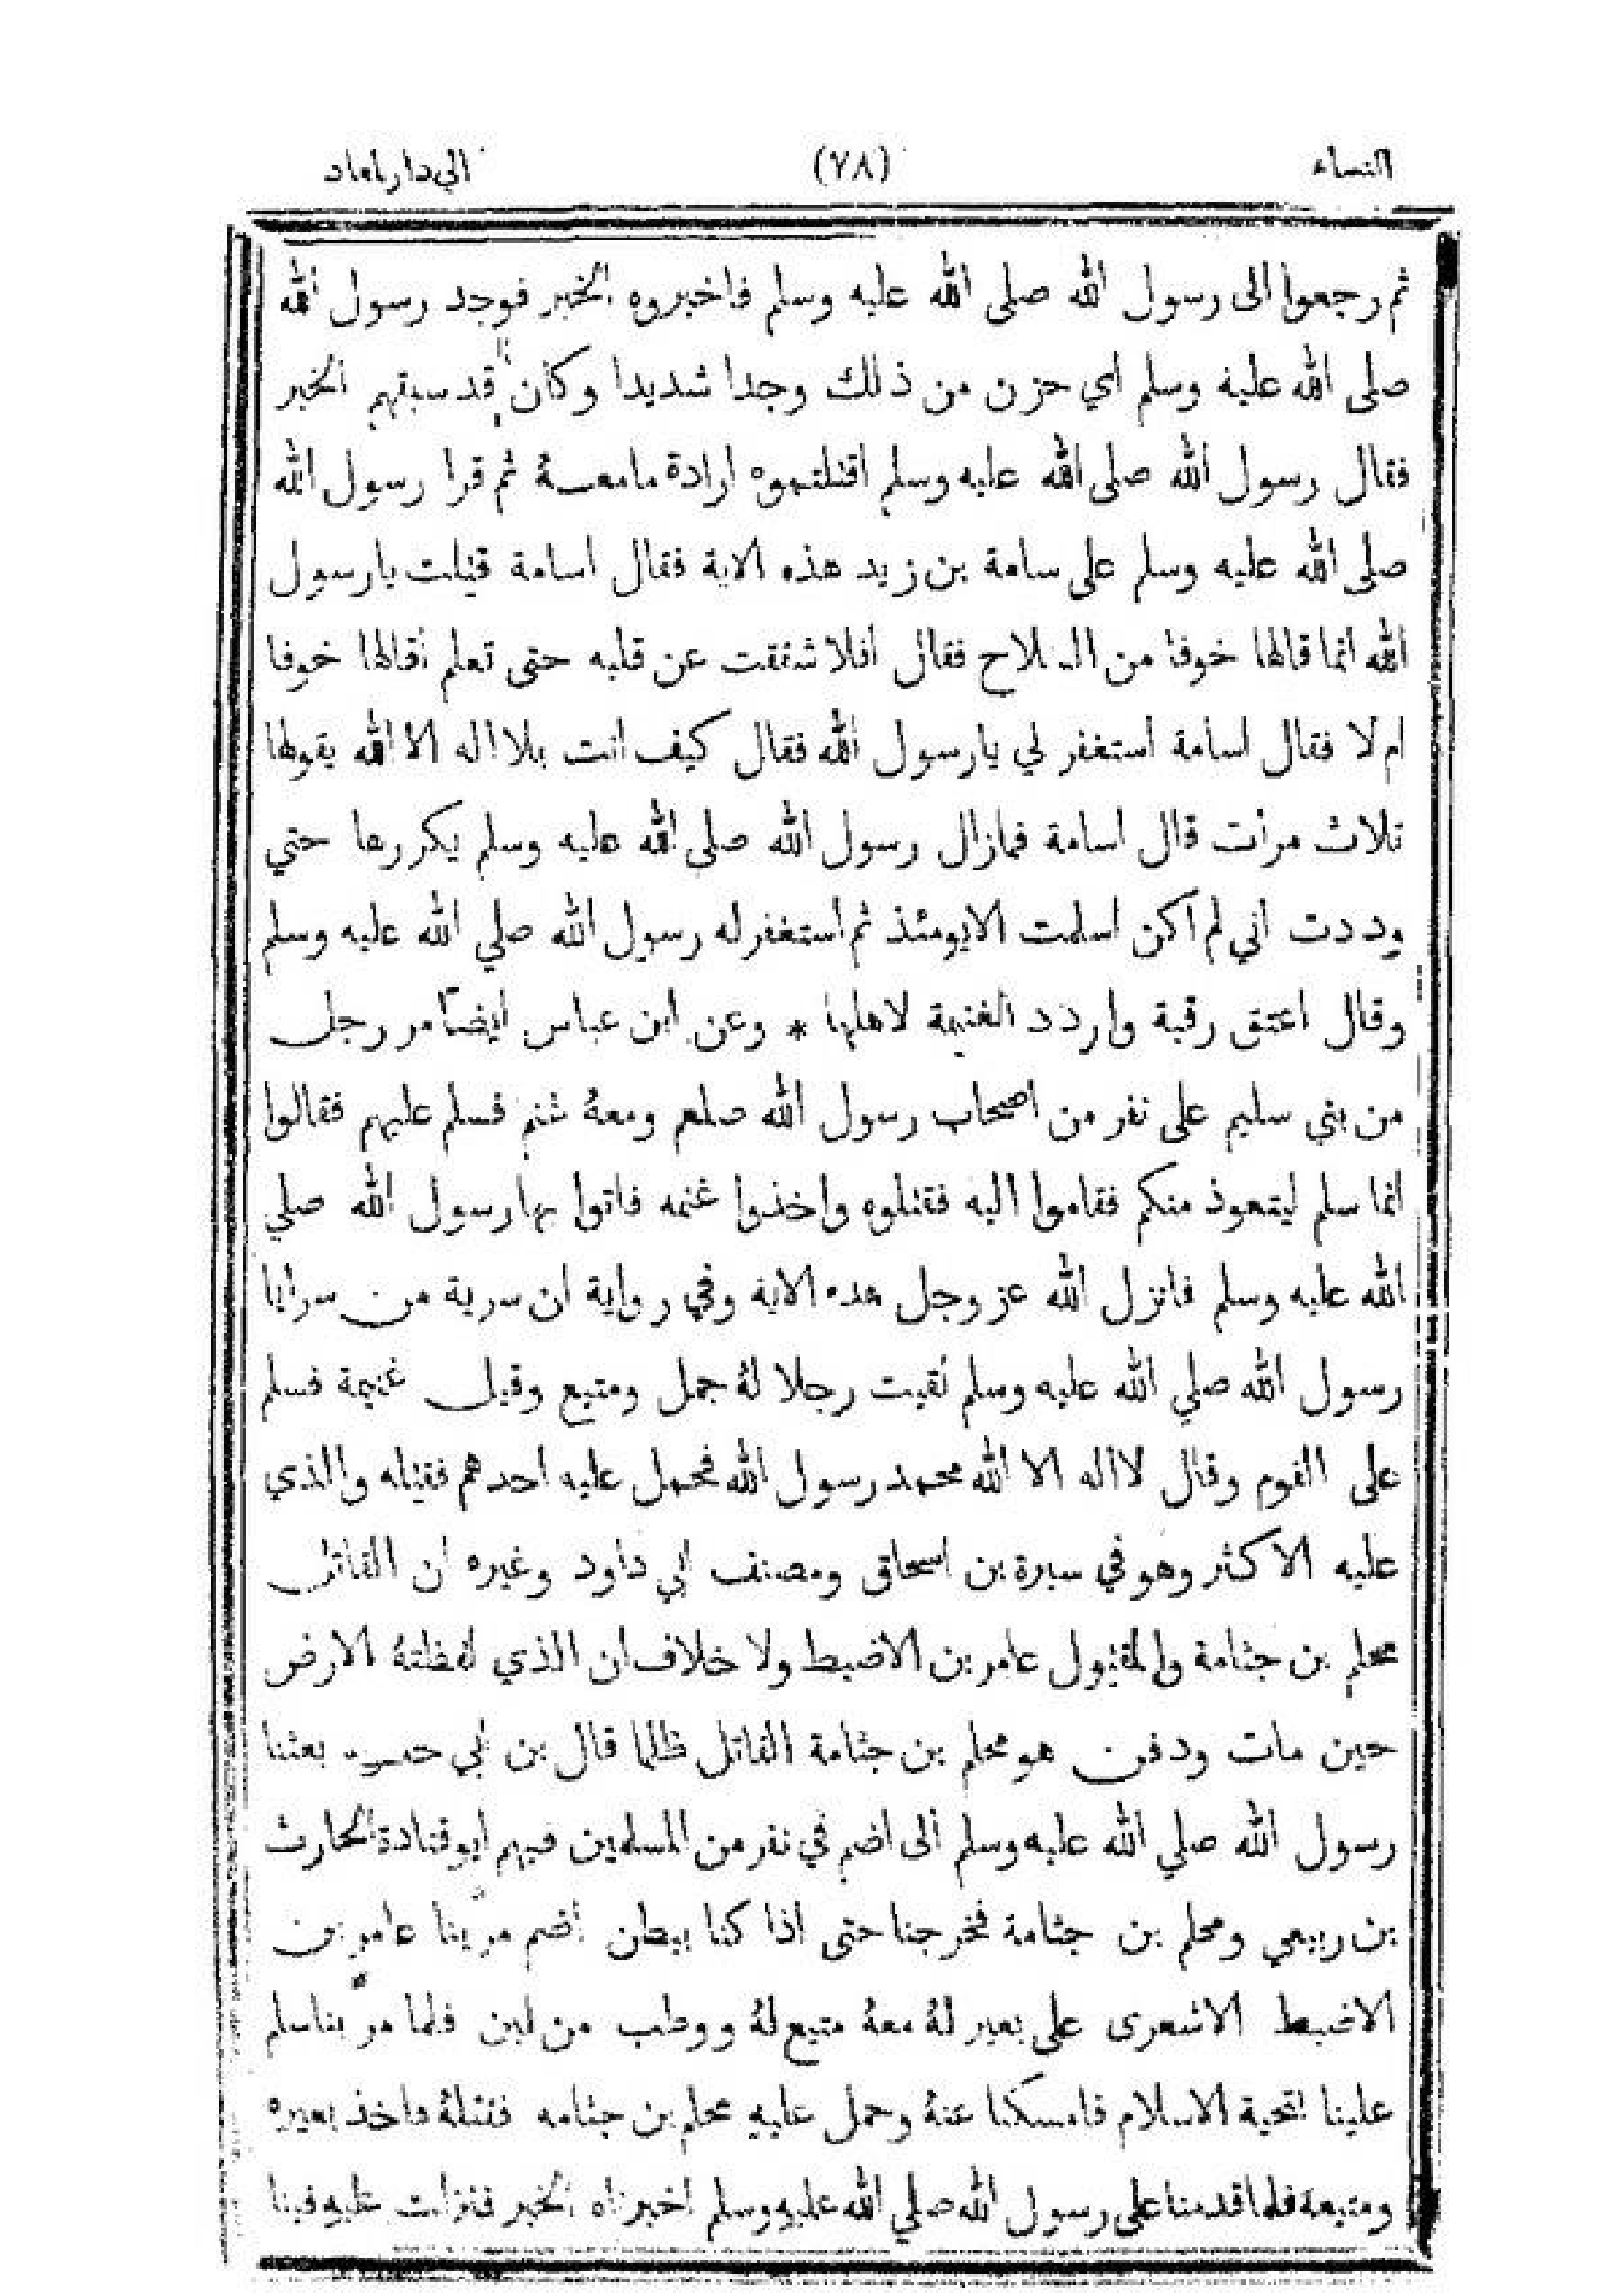 النساء (٧٨) الى دار المعاد
ثم رجعوا الى رسول الله صلى الله عليه وسلم فاخبروه الخبر فوجد رسول الله
صلى الله عليه وسلم اي حزن من ذلك وجدا شديدا وكان قد سبقهم الخبر
فقال رسول الله صلى الله عليه وسلم اقتلتموه ارادة مامعهُ ثم قرا رسول الله
صلى الله عليه وسلم على سامة بن زيد هذه الاية فقال اسامة قتلت يارسول
الله انما قالها خوفا من السلاح فقال افلا شققت عن قلبه حتى تعلم اقالها خوفا
ام لا فقال اسامة استغفر لي يارسول الله فقال كيف انت بلا اله الا الله يقولها
ثلاث مرات قال اسامة فمازال رسول الله صلى الله عليه وسلم يكررها حتي
وددت اني لم اكن اسلمت الايومئذ ثم استغفر له رسول الله صلي الله عليه وسلم
وقال اعتق رقبة واردد الغنيمة لاهلها * وعن ابن عباس ايضًا مر رجل
من بني سليم على نفر من اصحاب رسول الله صلعم ومعهُ غنم فسلم عليهم فقالوا
انما سلم ليتعوذ منكم فقاموا اليه فقتلوه واخذوا غنمه فاتوا بها رسول الله صلي
الله عليه وسلم فانزل الله عز وجل هذه الايه وفي رواية ان سرية من سرايا
رسول الله صلي الله عليه وسلم لقيت رجلا لهُ جمل ومتيع وقيل غنيمة فسلم
على القوم وقال لااله الا الله محمد رسول الله فحمل عليه احدهم فقتله والذي
عليه الاكثر وهو في سيرة بن اسحاق ومصنف ابي داود وغيره ان القاتل
محلم بن جثامة والمقتول عامر بن الاضبط ولا خلاف ان الذي لفظتهُ الارض
حين مات ودفن هو محلم بن جثامة القاتل ظلما قال بن ابي بعثنا
رسول الله صلي الله عليه وسلم الى اضم في نفر من المسلمين فيهم ابوقتادة الحارث
بن ربيعي ومحلم بن جثامة فخرجنا حتى اذا كنا ببطن اضم مرّ بنا عامر بن
الاضبط الاشعرى على بعير لهُ معهُ متيع لهُ ووطب من لبن فلما مرّ بنا سلم
علينا بتحية الاسلام فامسكنا عنهُ وحمل عليه محلم بن جثامه فقتلهُ واخذ بعيره
ومتيعه فلما قدمنا على رسول الله صلي الله عليه وسلم اخبرناه الخبر فنزلت عليه فينا